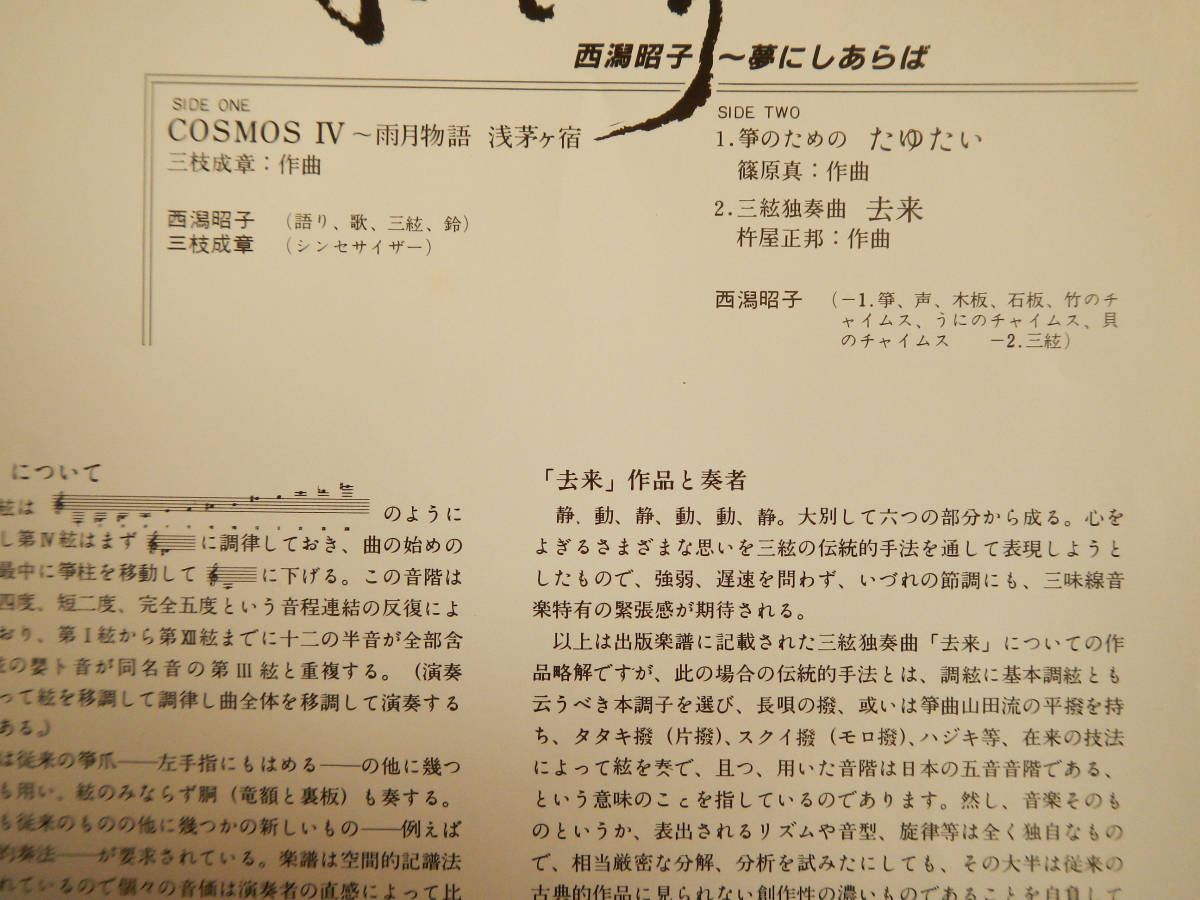 西潟昭子～夢にしあらば
SIDE ONE
COSMOS Ⅳ～雨月物語 浅茅ヶ宿
三枝成章：作曲
西潟昭子 （語り、歌、三絃、鈴）
三枝成章 （シンセサイザー）
SIDE TWO
1.箏のための たゆたい
篠原真：作曲
2.三絃独奏曲 去来
杵屋正邦：作曲
西潟昭子 （−1.箏、声、木板、石板、竹のチ
ャイムス、うにのチャイムス、貝
のチャイムス −2.三絃）
について
絃は のように
し第Ⅳ絃はまず に調律しておき、曲の始めの
最中に箏柱を移動して に下げる。この音階は
四度、短二度、完全五度という音程連結の反復によ
おり、第Ⅰ絃から第Ⅻ絃までに十二の半音が全部含
の嬰ト音が同名音の第Ⅲ絃と重複する。（演奏
って絃を移調して調律し曲全体を移調して演奏する
ある。）
は従来の箏爪――左手指にもはめる――の他に幾つ
も用い、絃のみならず胴（竜額と裏板）も奏する。
も従来のものの他に幾つかの新しいもの――例えば
的奏法――が要求されている。楽譜は空間的記譜法
れているので個々の音価は演奏者の直感によって比
「去来」作品と奏者
静、動、静、動、動、静。大別して六つの部分から成る。心を
よぎるさまざまな思いを三絃の伝統的手法を通して表現しようと
したもので、強弱、遅速を問わず、いづれの節調にも、三味線音
楽特有の緊張感が期待される。
以上は出版楽譜に記載された三絃独奏曲「去来」についての作
品略解ですが、此の場合の伝統的手法とは、調絃に基本調絃とも
云うべき本調子を選び、長唄の撥、或いは箏曲山田流の平撥を持
ち、タタキ撥（片撥）、スクイ撥（モロ撥）、ハジキ等、在来の技法
によって絃を奏で、且つ、用いた音階は日本の五音音階である、
という意味のことを指しているのであります。然し、音楽そのも
のというか、表出されるリズムや音型、旋律等は全く独自なもの
で、相当厳密な分解、分析を試みたにしても、その大半は従来の
古典的作品に見られない創作性の濃いものであることを自負して